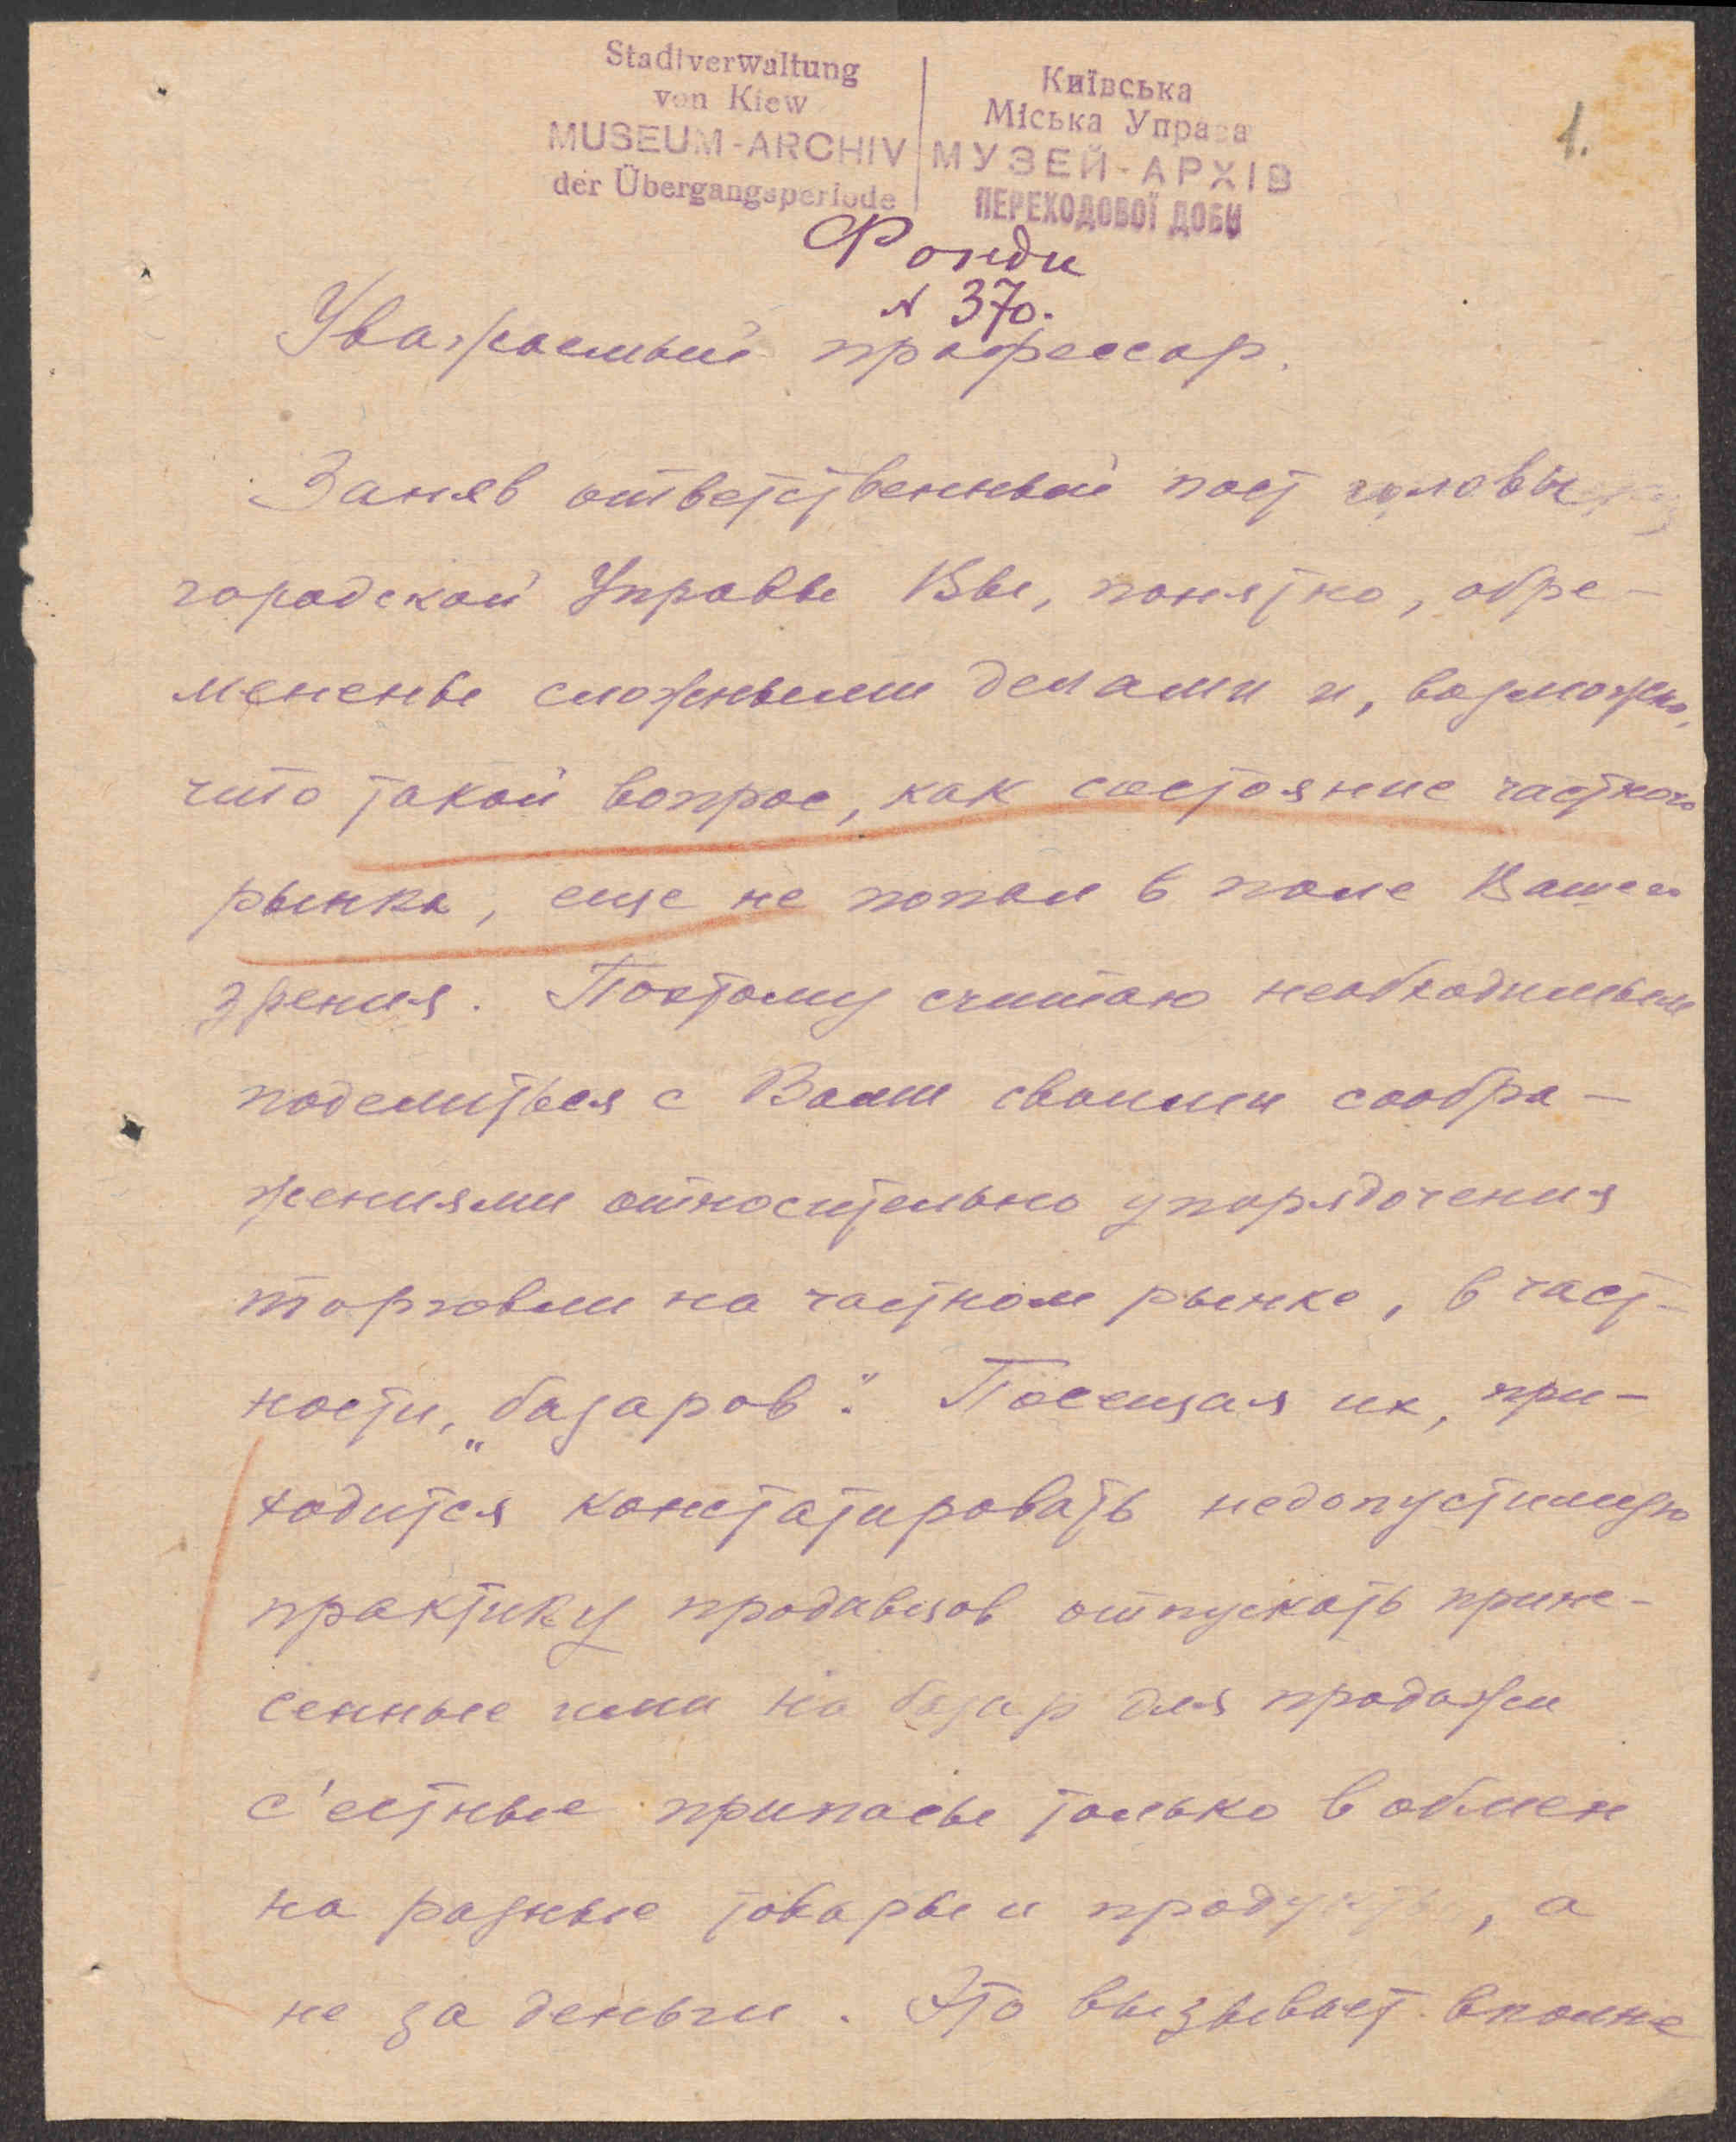 Stadtverwaltung
von Kiew
MUSEUM-ARCHIV
der Übergangsperiode
Київська
Міська Управа
МУЗЕЙ-АРХІВ
ПЕРЕХОДОВОЇ ДОБИ
1.
Фонди
№ 370.
Уважаемый профессор.
Заняв ответственный пост головы
городской Управы Вы, понятно, обре-
менены сложными делами и, возможно,
что такой вопрос, как состояние частного
рынка, еще не попал в поле Вашего
зрения. Поэтому считаю необходимым
поделиться с Вами своими сообра-
жениями относительно упорядочения
торговли на частном рынке, в част-
ности, „базаров". Посещая их, при-
ходится констатировать недопустимую
практику продавцов отпускать прине-
сенные ими на базар для продажи
с'естные припасы только в обмен
на разные товары и продукты, а
не за деньги. Это вызывает вполне